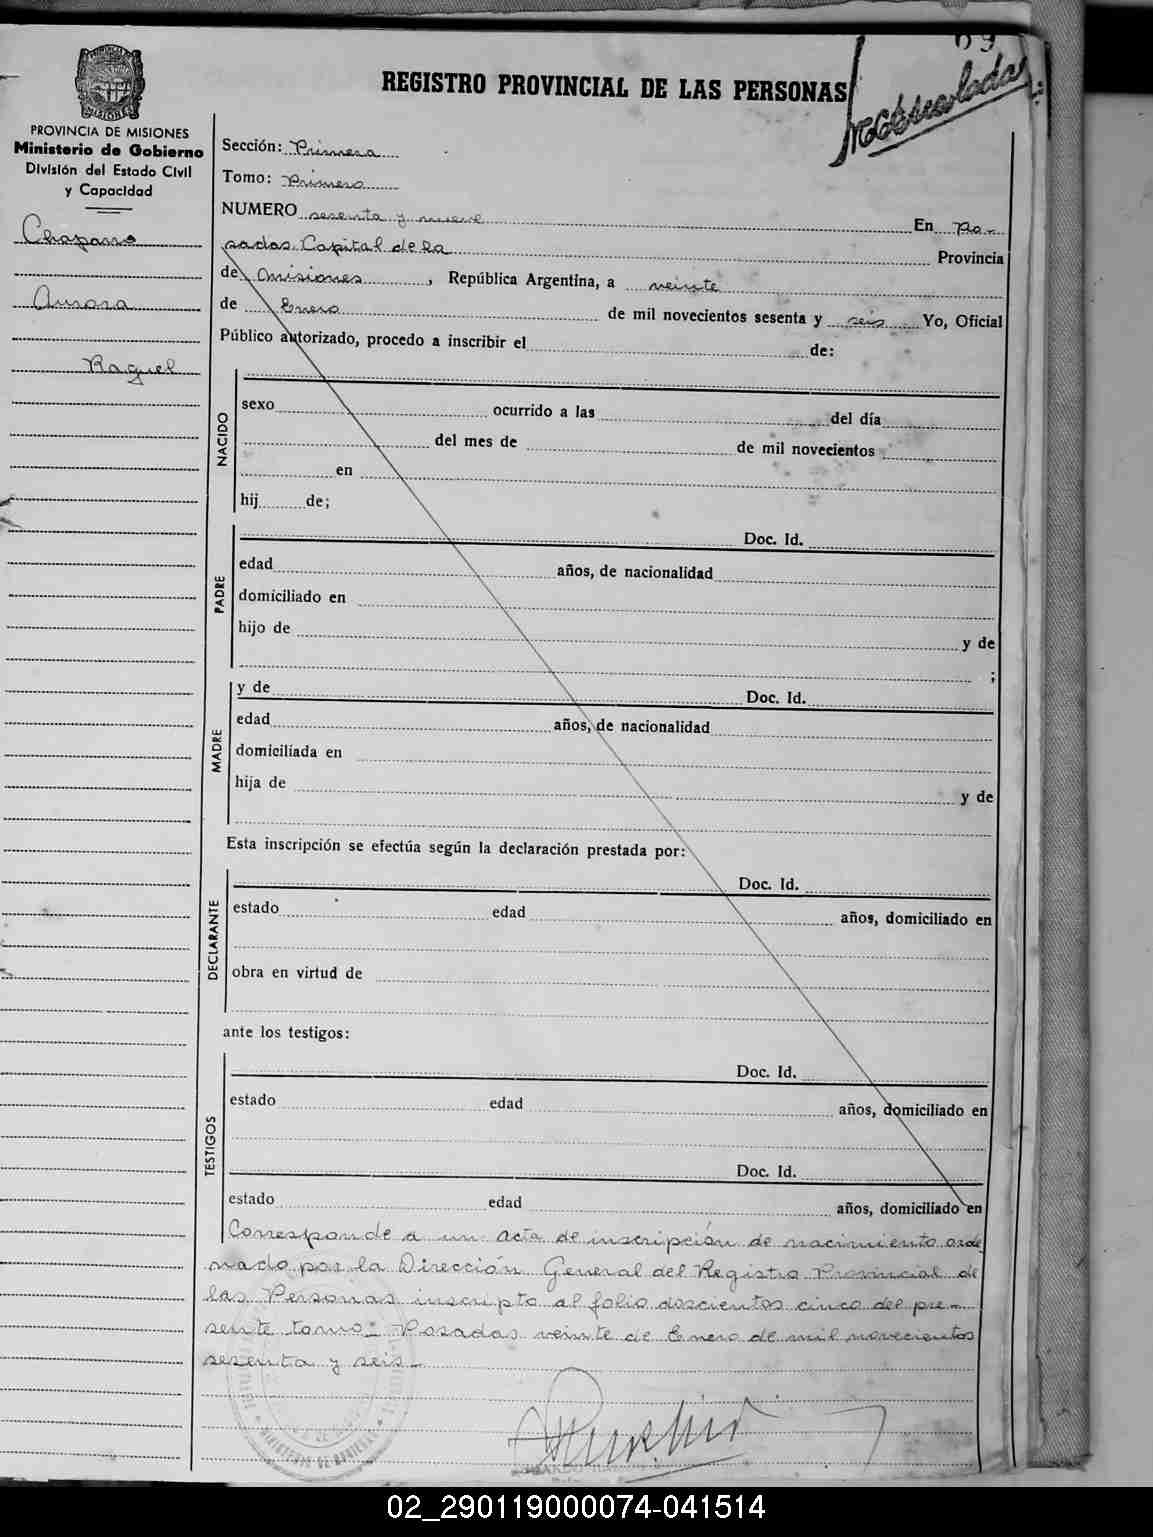 69
REGISTRO PROVINCIAL DE LAS PERSONAS
PROVINCIA DE MISIONES
Ministerio de Gobierno
División del Estado Civil
y Capacidad
Chaparro
Aurora
Raquel
Sección: Primera
Tomo: Primero
NUMERO sesenta y nueve En Po-
sadas Capital de la Provincia
de Misiones, República Argentina, a veinte
de Enero de mil novecientos sesenta y seis Yo, Oficial
Público autorizado, procedo a inscribir el de:
NACIDO
sexo ocurrido a las del día
del mes de de mil novecientos
en
hij de;
PADRE
Doc. Id.
edad años, de nacionalidad
domiciliado en
hijo de y de
;
MADRE
y de Doc. Id.
edad años, de nacionalidad
domiciliada en
hija de y de
Esta inscripción se efectúa según la declaración prestada por:
DECLARANTE
Doc. Id.
estado edad años, domiciliado en
obra en virtud de
ante los testigos:
TESTIGOS
Doc. Id.
estado edad años, domiciliado en
Doc. Id.
estado edad años, domiciliado en
Corresponde a un acta de inscripción de nacimiento orde
nado por la Dirección General del Registro Provincial de
las Personas inscripto al folio doscientos cinco del pre-
sente tomo.- Posadas veinte de Enero de mil novecientos
sesenta y seis.-
02_290119000074-041514